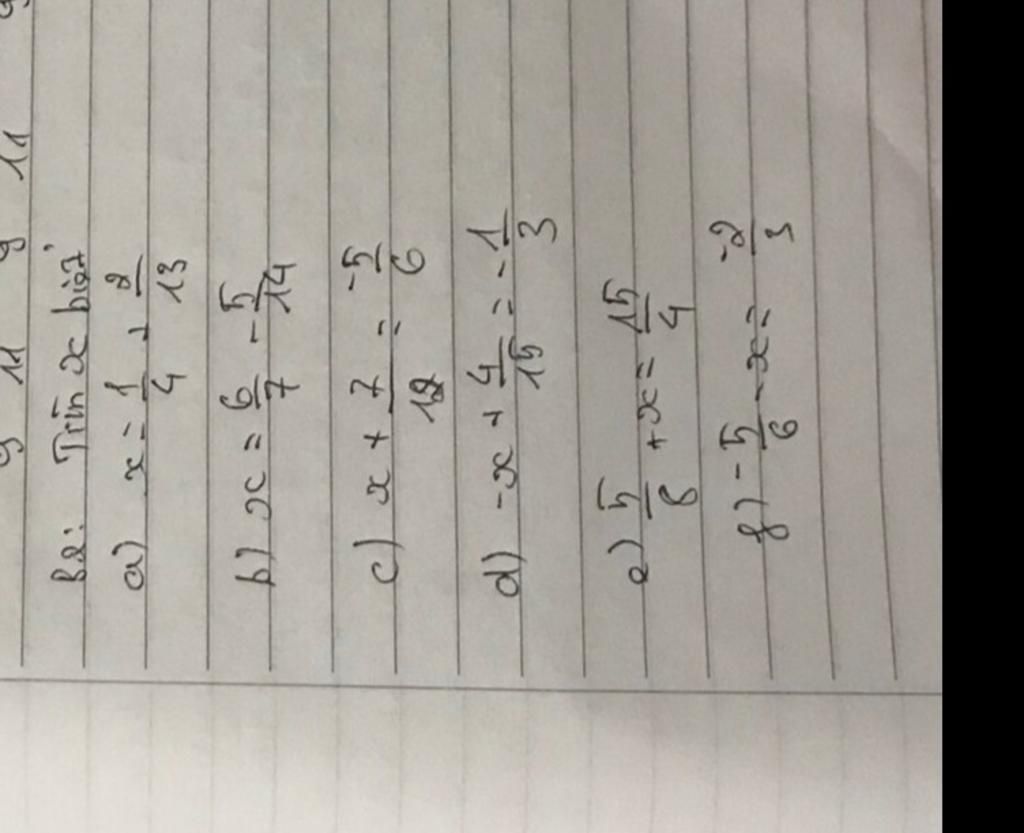 9 11 9 11 9
B2: Tìm x biết
a) x = 1/4 + 2/13
b) x = 6/7 - 5/14
c) x + 7/12 = -5/6
d) -x + 4/15 = -1/3
e) 5/8 + x = 15/4
f) -5/6 - x = -2/3